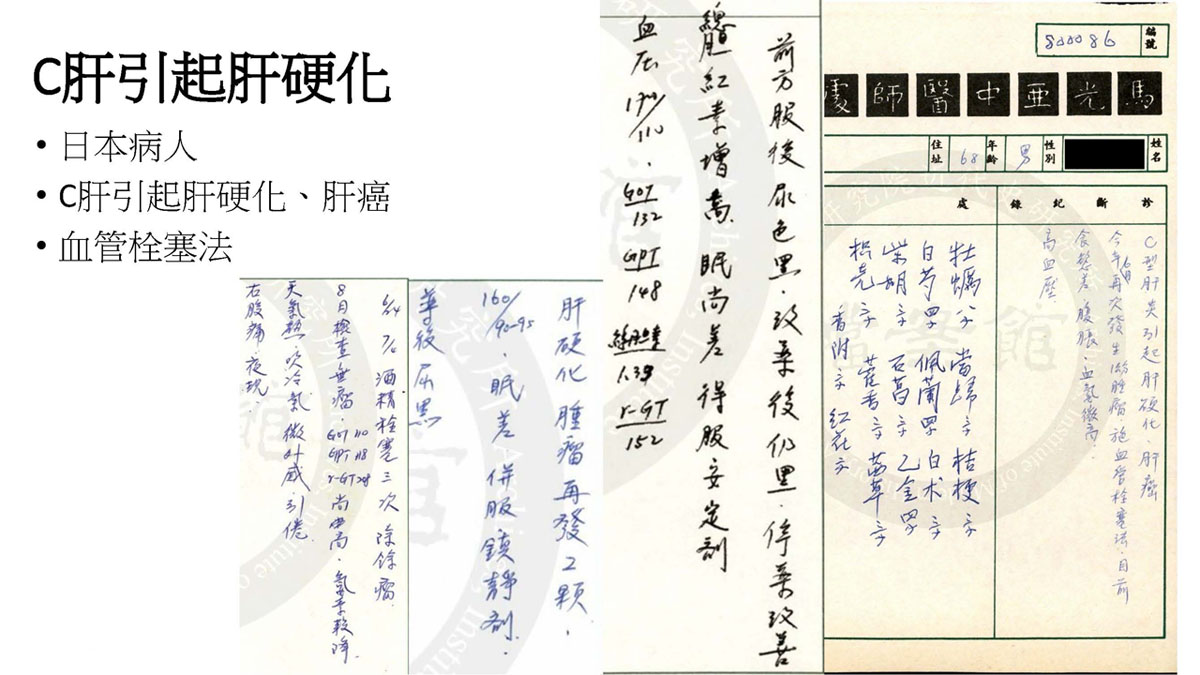 C肝引起肝硬化
• 日本病人
• C肝引起肝硬化、肝癌
• 血管栓塞法
編號
800086
馬光亞中醫師處
姓名
性別
男
年齡
68
住址
診斷紀錄
處
C型肝炎引起肝硬化、肝癌
今年6月再次發生 腫瘤 施血管栓塞法.目前
食慾差 腹脹.血氨微高.
高血壓
牡蠣 當歸 桔梗
白芍 佩蘭 白术
柴胡 石菖 乙金
枳壳 藿香 茜草
香附 紅花
前方服後尿色黑.改藥後仍黑.停藥改善
總胆紅素增高 眠尚差 得服安定劑
血压 170/110.
GOT 132
GPT 148
1.39
r-GT 152
肝硬化腫瘤再發2顆.
160/90-95.眠差 併服鎮静劑.
藥後尿黑
酒精栓塞三次 除餘瘤
8月檢查無瘤.GOT 110 GPT 118 r-GT 尚高.氨 較降.
天氣熱.吹冷氣 微外感引倦.
右股痛.夜現.